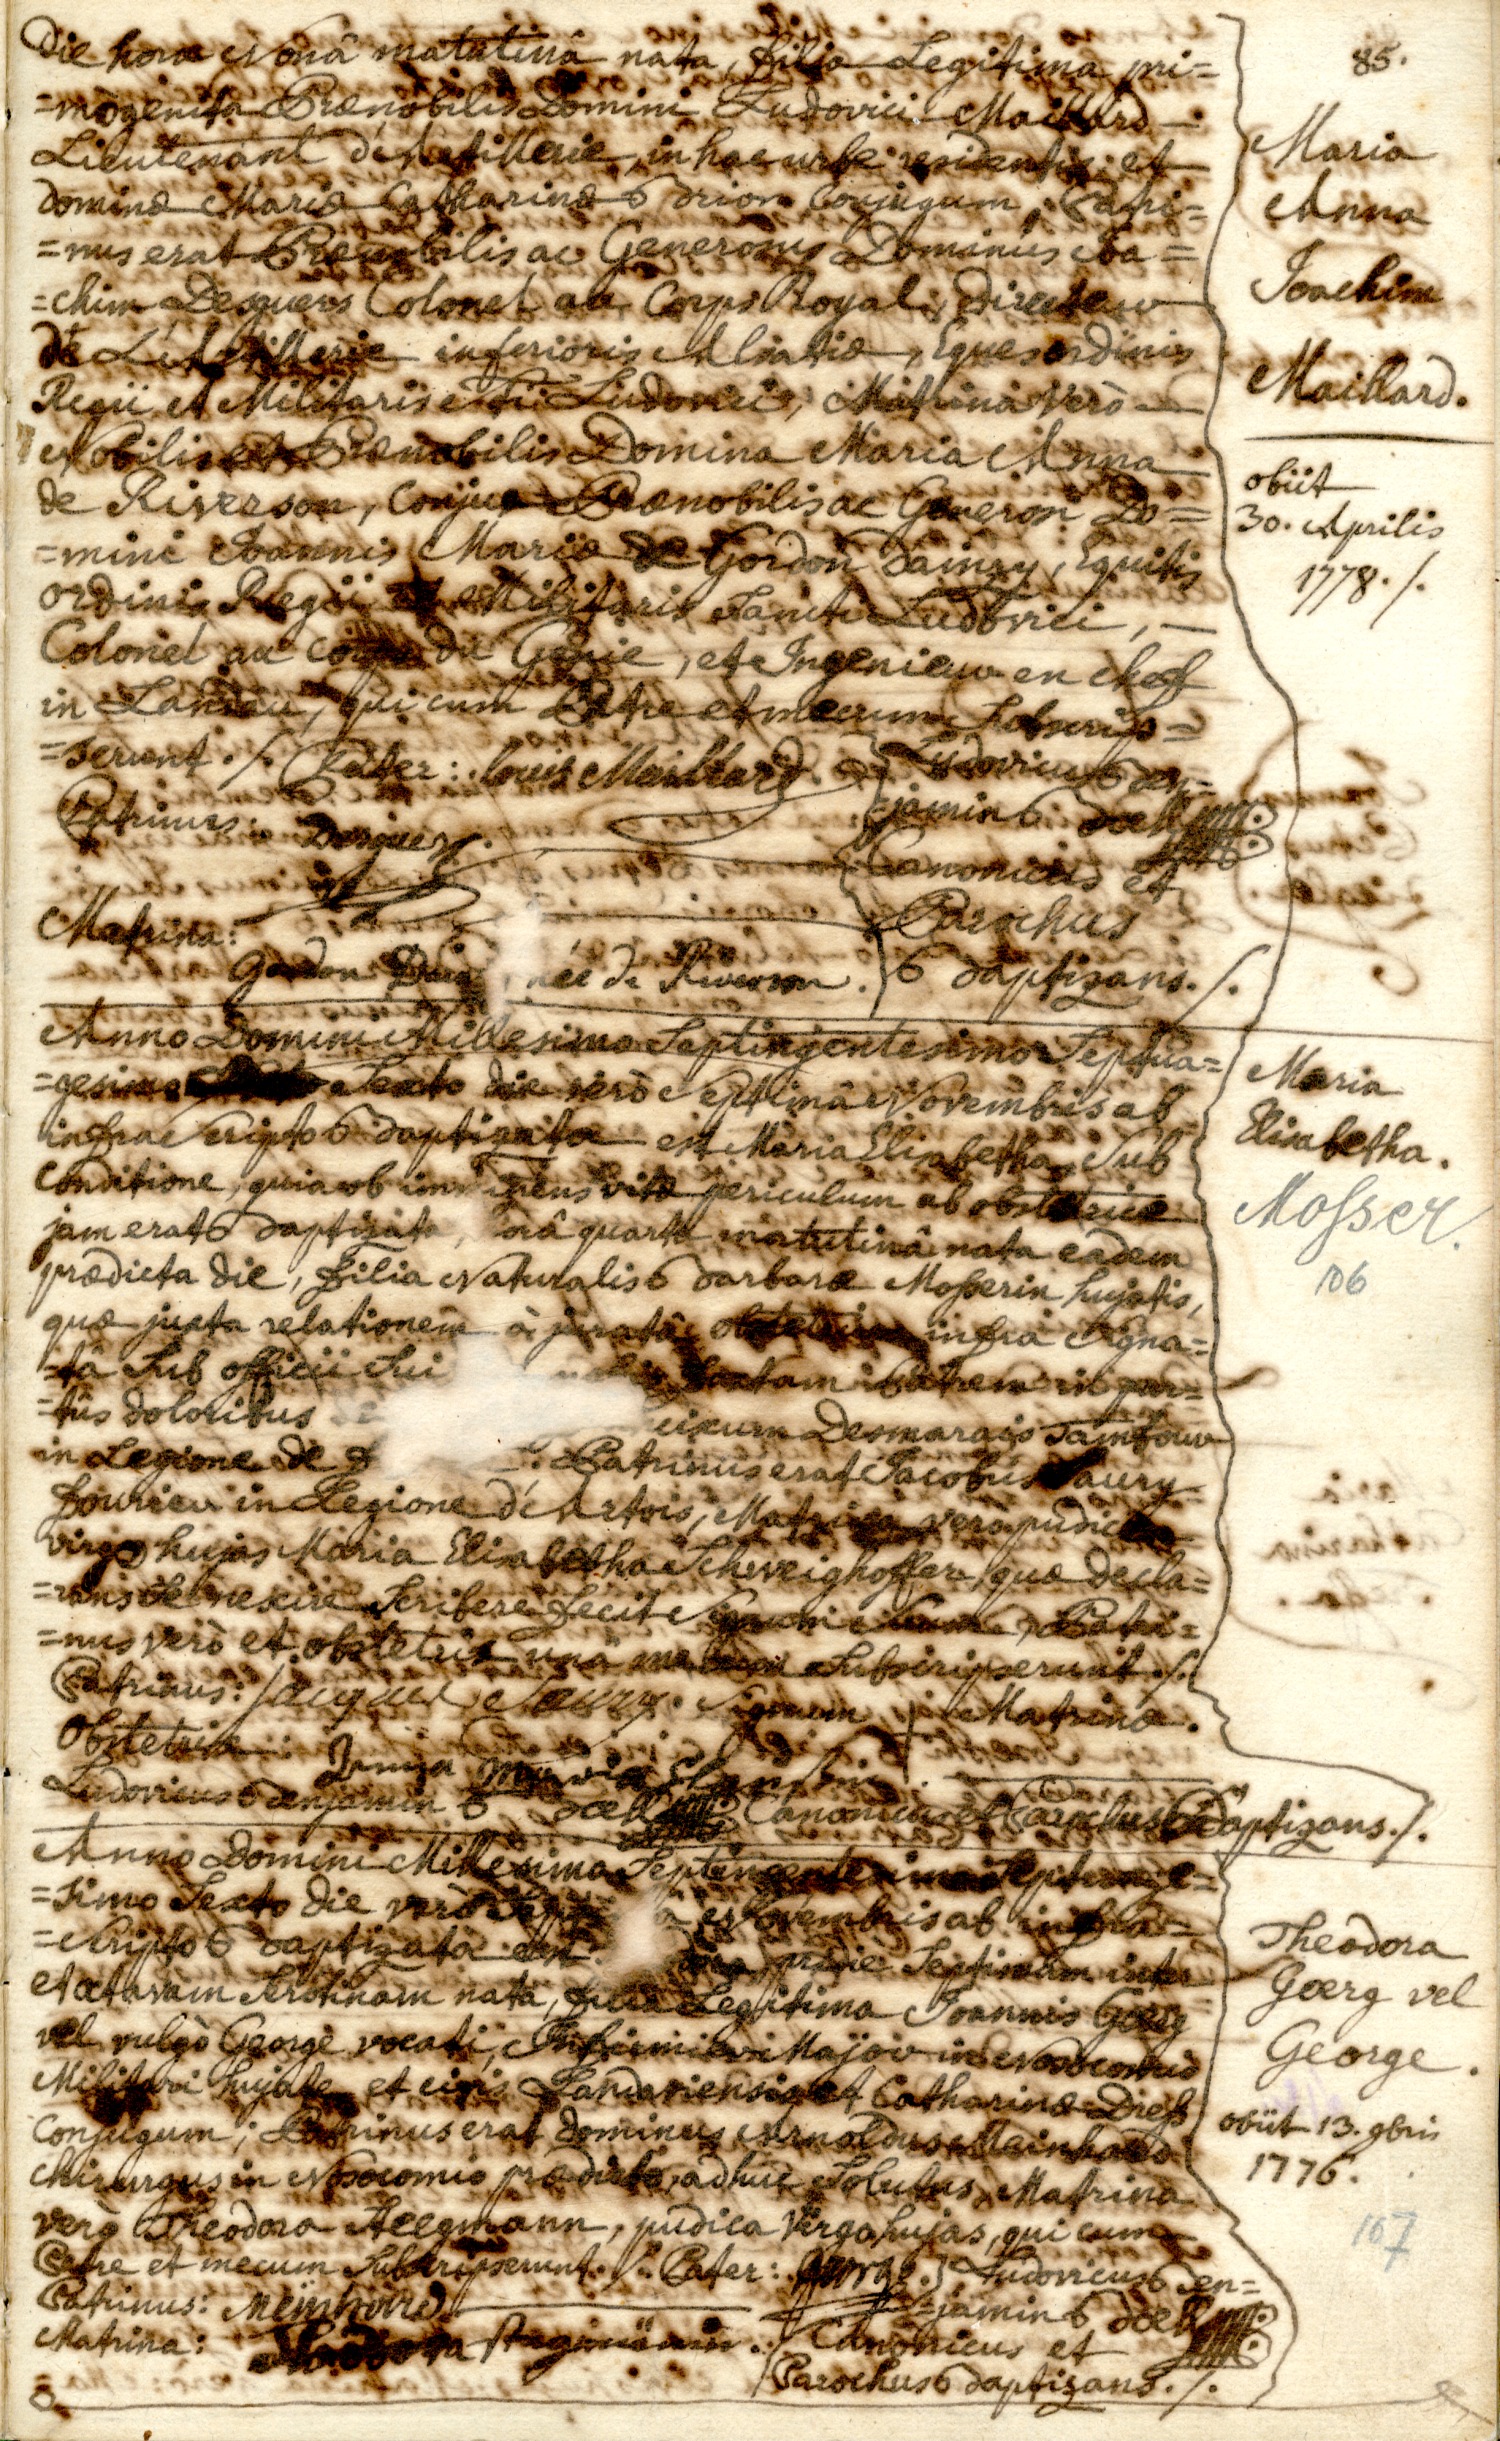 85.
Die hora Nonâ matutinâ nata, filia Legitima pri=
=mogenita Prænobilis Domini Ludovici Maillard
Lieutenant d'Artillerie, in hac urbe residentis et
Dominæ Mariæ Catharinæ Brion Conjugum, Patri=
=nus erat Prænobilis ac Generosus Dominus Joa=
=chim Desguers Colonel au Corps Royal, Directeur
de L'Artillerie inferioris Alsatiæ, Eques ordinis
Regii et Militaris Sti Ludovici, Matrina Verò
Nobilis et Prænobilis Domina Maria Anna
de Riverson, Conjux Prænobilis ac Generosi Do=
=mini Joannis Mariæ de Gordon Dainzy, Equitis
Ordinis Regii et Militaris Sancti Ludovici,
Colonel au corps du Genie, et Ingenieur en chef
in Landau, qui cum Patre et mecum Subscrip=
=serunt ./. Pater: louis Maillard.
Ludovicus Ben=
=jamin Boell
Patrinus: Desguers.
Canonicus et
Parochus
Matrina:
Gordon née de Riverson.
Baptizans ./.
Maria
Anna
Joachim
Maillard.
obiit
30. Aprilis
1778 ./.
Anno Domini Millesimo Septingentesimo Septua=
=gesimo Sexto die verò Septimâ Novembris ab
infra Scripto Baptizata est Maria Elisabetha, Sub
Conditione, quia ob imminens vitæ periculum ab obstetrice
jam erat Baptizata, horâ quartâ matutinâ nata eadem
prædicta die, filia Naturalis Barbaræ Mosserin hujatis,
quæ juxta relationem à juratâ obstetrice infra Signa=
=tâ Sub officii Sui Patrem in par=
=tûs doloribus Desmarais Tambour
in Legione de Patrinus erat Jacobus Saury
fourier in Legione d'Artois, Matrina verò pudica
virgo hujas Maria Elisabetha Schweighoffer, quæ decla=
=rans Se nescire Scribere fecit Signum Suum, Patri=
=nus verò et obstetrix unâ mecum Subscripserunt ./.
Patrinus: Jacques Saury. Signum + Matrinæ.
Obstetrix: Maria
Ludovicus Benjamin Boell Canonicus et Parochus Baptizans ./.
Maria
Elisabetha.
Mosser.
106
Anno Domini Millesimo Septingentesimo Septuage=
=simo Sexto die verò Novembris ab infra=
=Scripto Baptizata est pridie Septimam inter
et octavam Serotinam nata, filia Legitima Joannis Goerg
vel vulgò George vocati, Infirmier Major in Nosocomio
Militari hujate et civis Landaviensis et Catharinæ Dieß
Conjugum; Patrinus erat Dominus Arnoldus Meinhard
Chirurgus in Nosocomio prædicto, adhuc Solutus, Matrina
verò Theodora Stegmann, pudica Virgo hujas, qui cum
Patre et mecum Subscripserunt ./. Pater: George.
Ludovicus Ben=
=jamin Boell
Patrinus: Meinhard
Canonicus et
Matrina: Theodora
Parochus Baptizans ./.
Theodora
Goerg vel
George.
obiit 13. 9bris
1776.
107